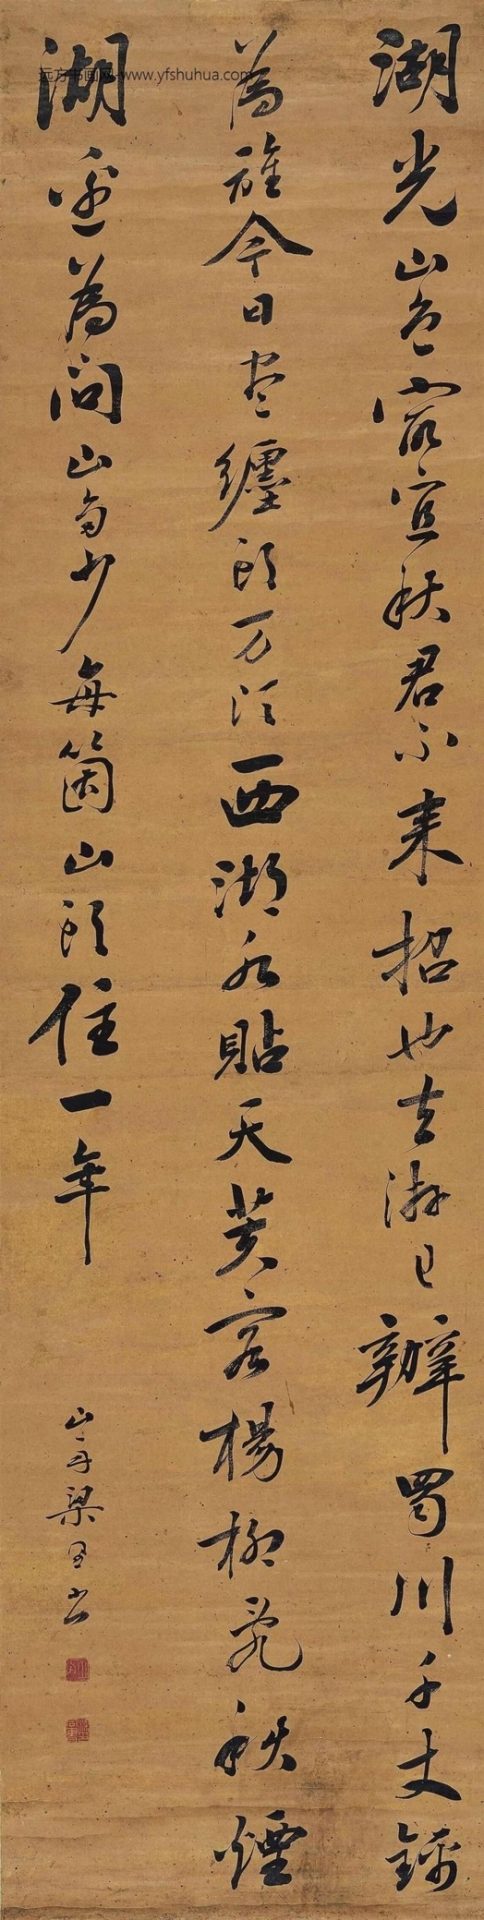 远方书画网-www.yfshuhua.com
湖光山色最宜秋君不来招也去游已辦蜀川千丈錦
為誰今日尽纏頭万頃西湖水貼天芙容楊柳亂秋煙
湖邊為問山多少每箇山頭住一年
山舟梁同書